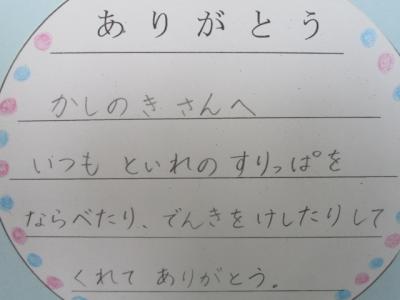 ありがとう
かしのきさんへ
いつも といれの すりっぱを
ならべたり、でんきをけしたりして
くれて ありがとう。